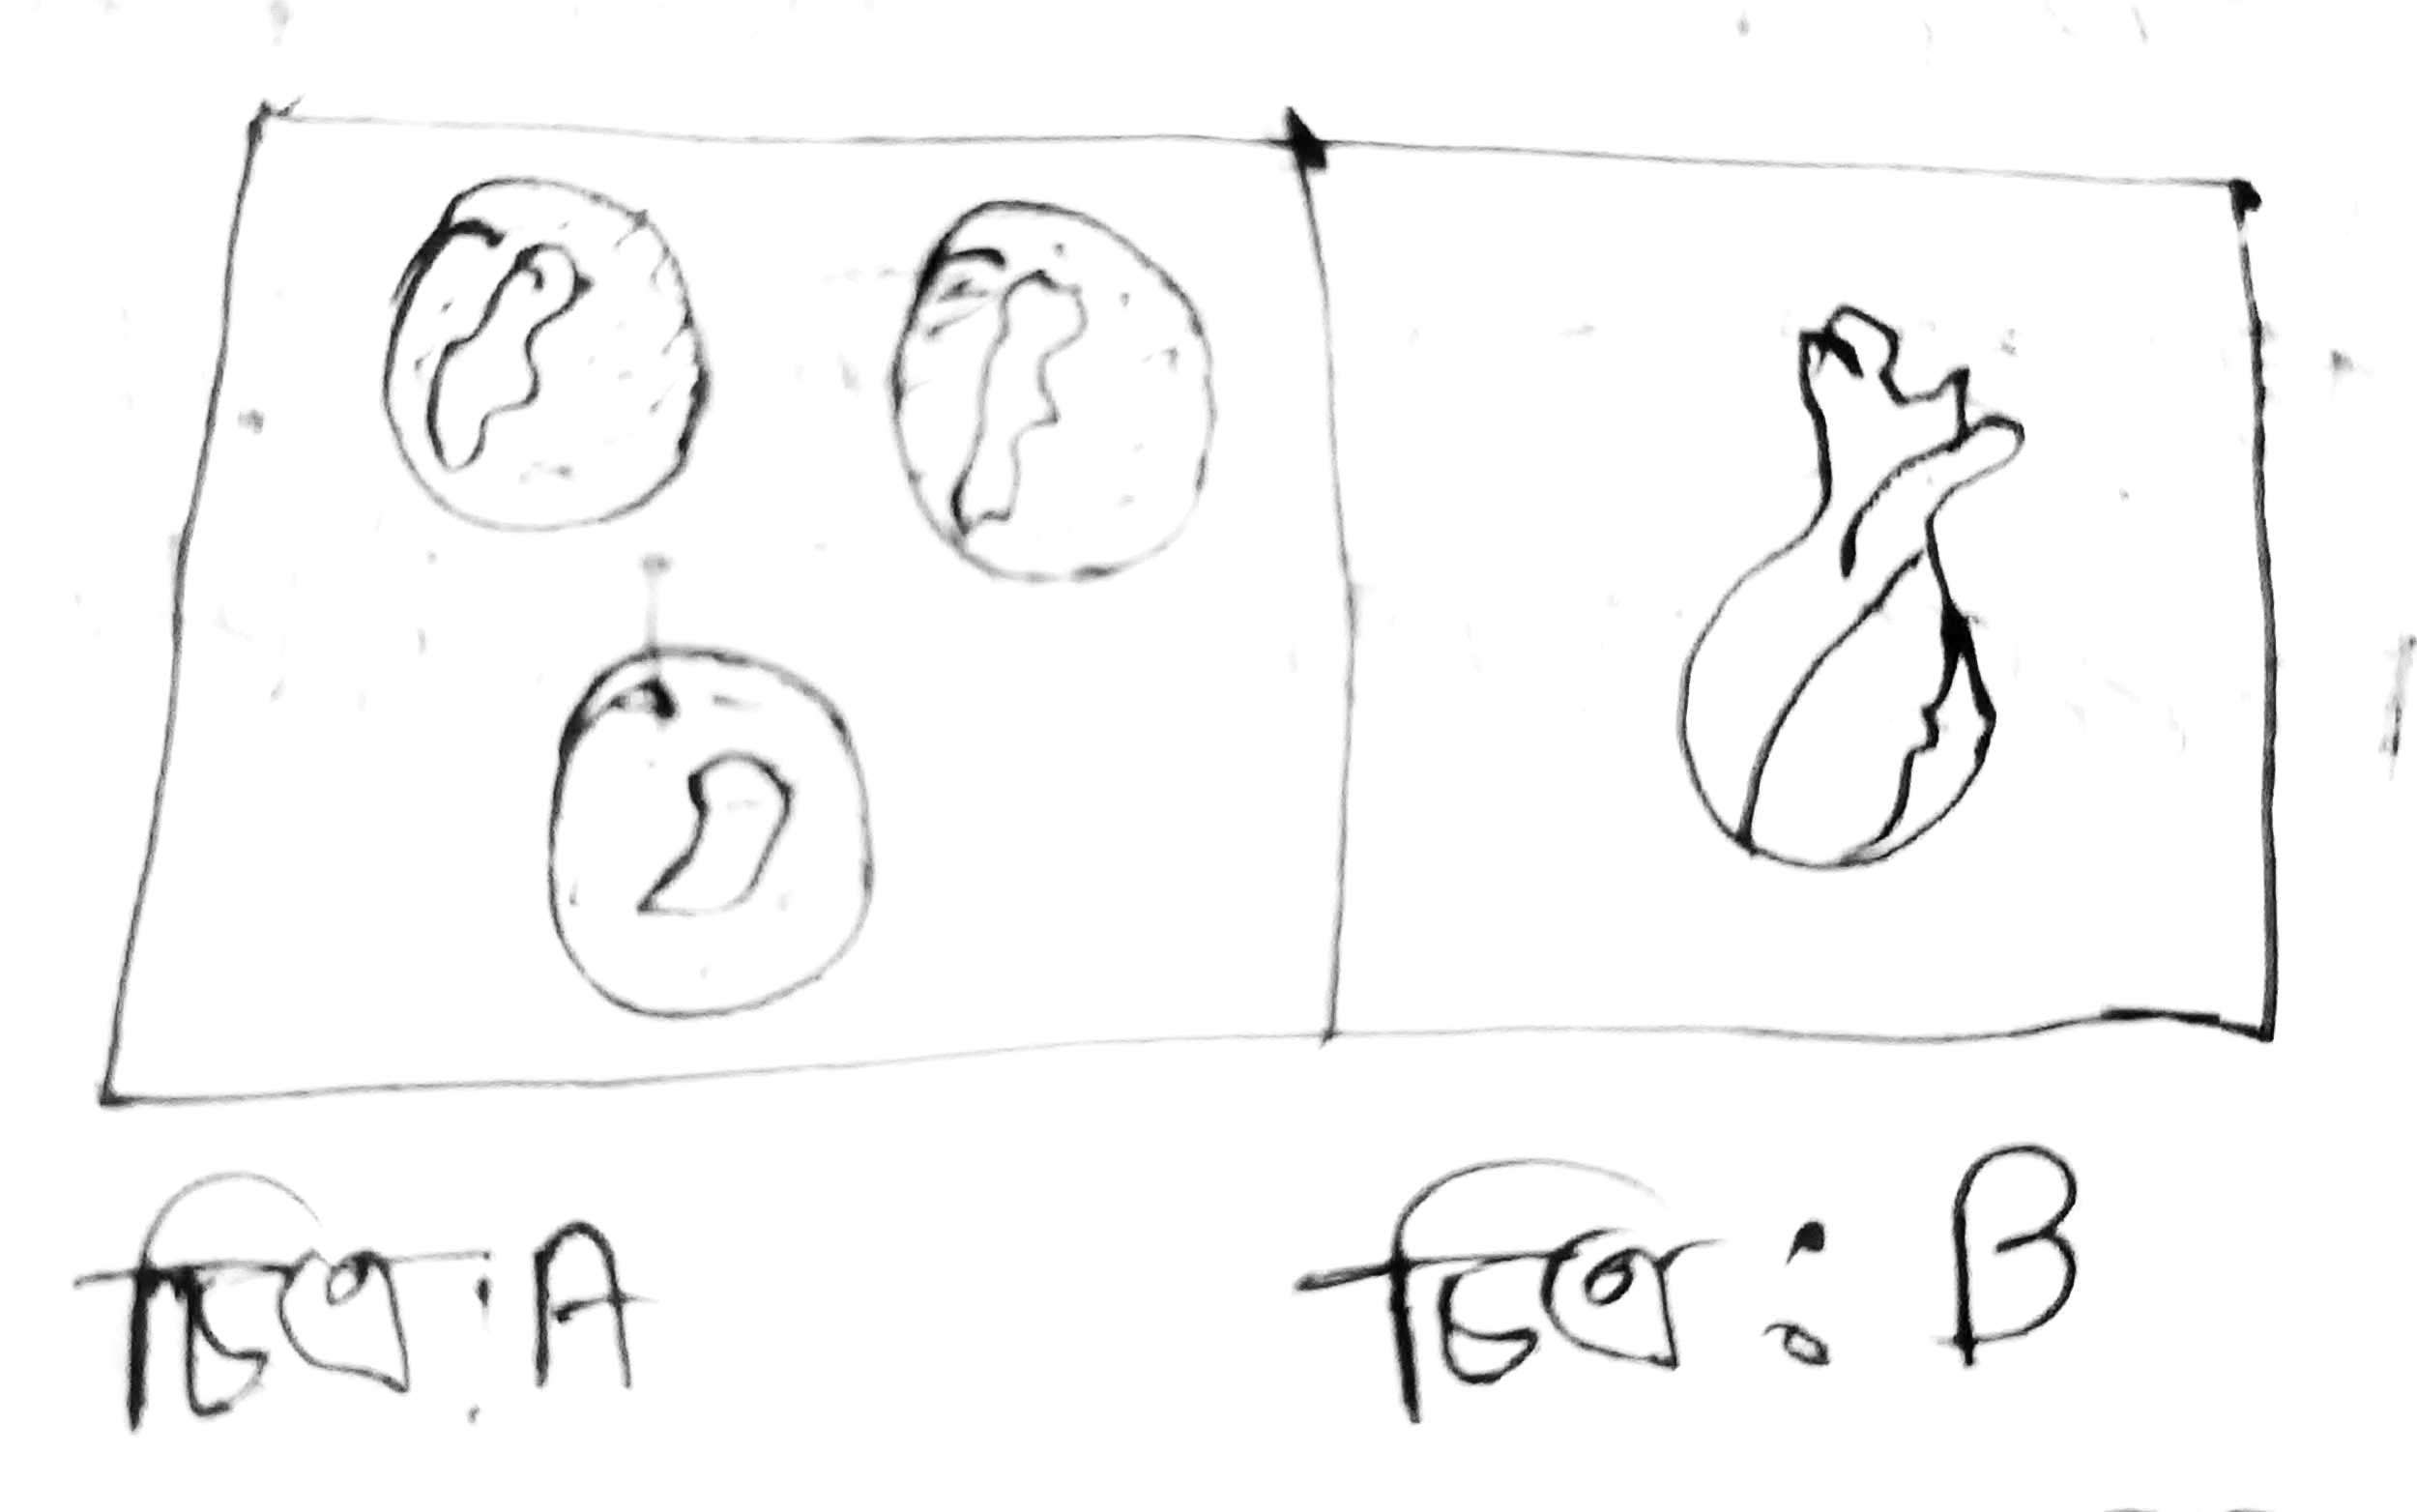 চিত্র : A
চিত্র : B